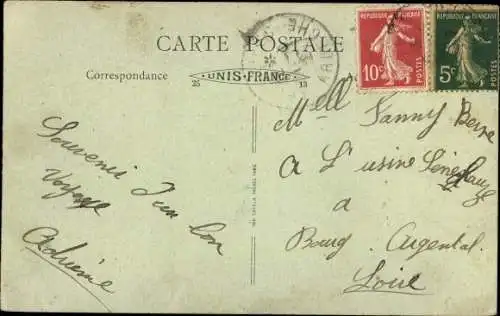 CARTE POSTALE
Correspondance
25 UNIS-FRANCE 13
REPUBLIQUE FRANÇAISE
10c POSTES
REPUBLIQUE FRANÇAISE
5c POSTES
Souvenir d'un bon
Voyage
Mell Fanny
A L'usine
a
Bourg. Argental.
Loire